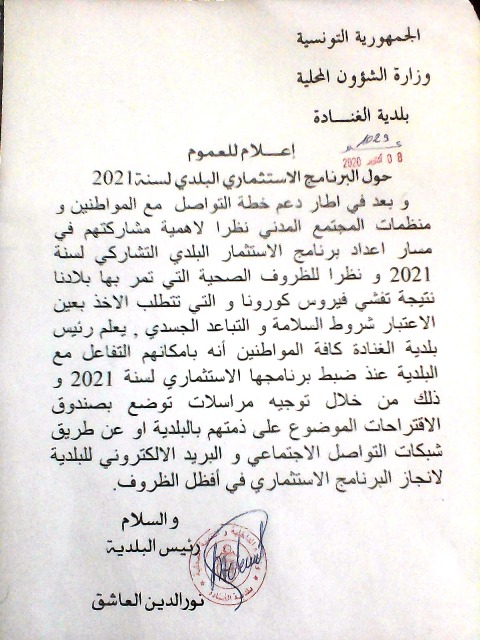 الجمهورية التونسية
وزارة الشؤون المحلية
بلدية الغنـــادة
1029
08 أكتوبر 2020
إعـــلام للعموم
حول البرنامج الاستثماري البلدي لسنة 2021
و بعد في اطار دعم خطة التواصل مع المواطنين و
منظمات المجتمع المدني نظرا لاهمية مشاركتهم في
مسار اعداد برنامج الاستثمار البلدي التشاركي لسنة
2021 و نظرا للظروف الصحية التي تمر بها بلادنا
نتيجة تفشي فيروس كورونا و التي تتطلب الاخذ بعين
الاعتبار شروط السلامة و التباعد الجسدي , يعلم رئيس
بلدية الغنادة كافة المواطنين أنه بامكانهم التفاعل مع
البلدية عند ضبط برنامجها الاستثماري لسنة 2021 و
ذلك من خلال توجيه مراسلات توضع بصندوق
الاقتراحات الموضوع على ذمتهم بالبلدية او عن طريق
شبكات التواصل الاجتماعي و البريد الالكتروني للبلدية
لانجاز البرنامج الاستثماري في أفظل الظروف.
و السلام
رئيس البلدية
نورالدين العاشق